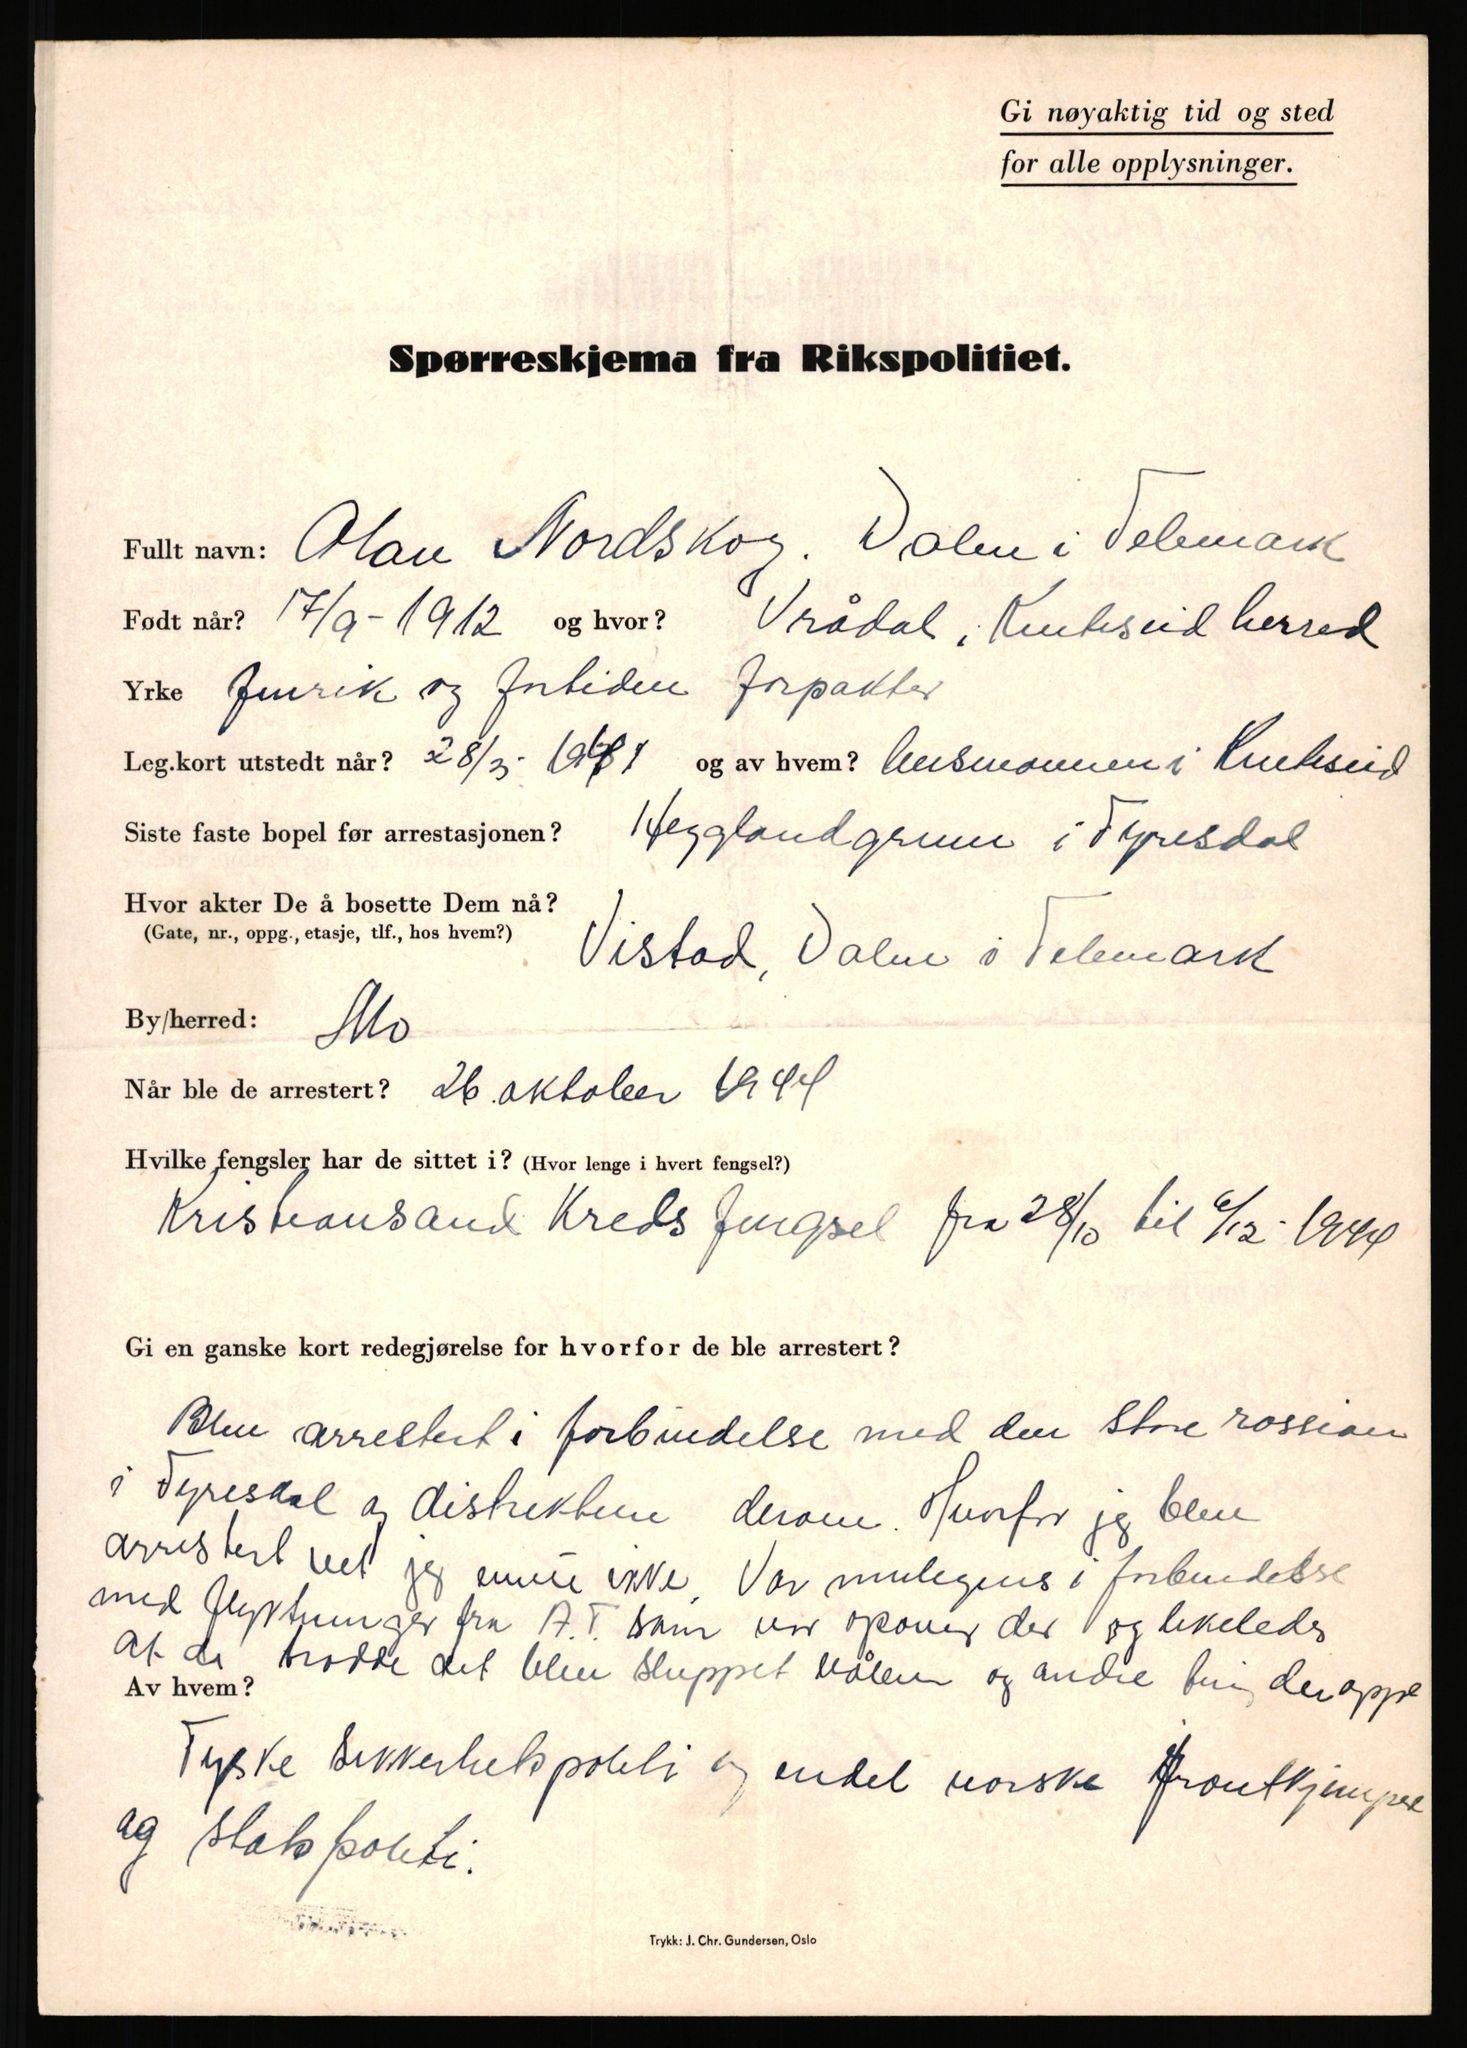 Gi nøyaktig tid og sted
for alle opplysninger.
Spørreskjema fra Rikspolitiet.
Fullt navn: Olav Nordskog. Dalen i Telemark
Født når? 17/9-1912 og hvor? Vrådal, Kviteseid herred
Yrke og fortiden forpakter
Leg.kort utstedt når? 28/3- 1941 og av hvem? lensmannen i Kviteseid
Siste faste bopel før arrestasjonen? Heggland i Fyresdal
Hvor akter De å bosette Dem nå?
(Gate, nr., oppg., etasje, tlf., hos hvem?) Vistad, Dalen i Telemark
By/herred: Mo
Når ble de arrestert? 26. oktober 1944
Hvilke fengsler har de sittet i? (Hvor lenge i hvert fengsel?)
Kristiansand Kreds fengsel fra 28/10 til 6/12- 1944
Gi en ganske kort redegjørelse for hvorfor de ble arrestert?
Blev arrestert i forbindelse med den store rassian
i Fyresdal og distriktene derom. Hvorfor jeg blev
arrestert vet jeg ennu ikke. Var muligens i forbindelse
med flyktninger fra A.T. som var der og likeledes
at de trodde det blev sluppet våben og andre ting der oppe
Av hvem?
Tyske sikkerhetspoliti og endel norske frontkjempere
og statspoliti.
Trykk: J. Chr. Gundersen, Oslo